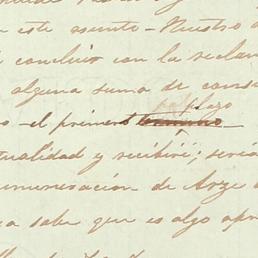 este asunto - Nuestro
concluir con la reclam
alguna suma de cons
plazo
o - el primero termino -
tualidad y recibiré; seria
emuneración de Arze
a saber que es algo apr